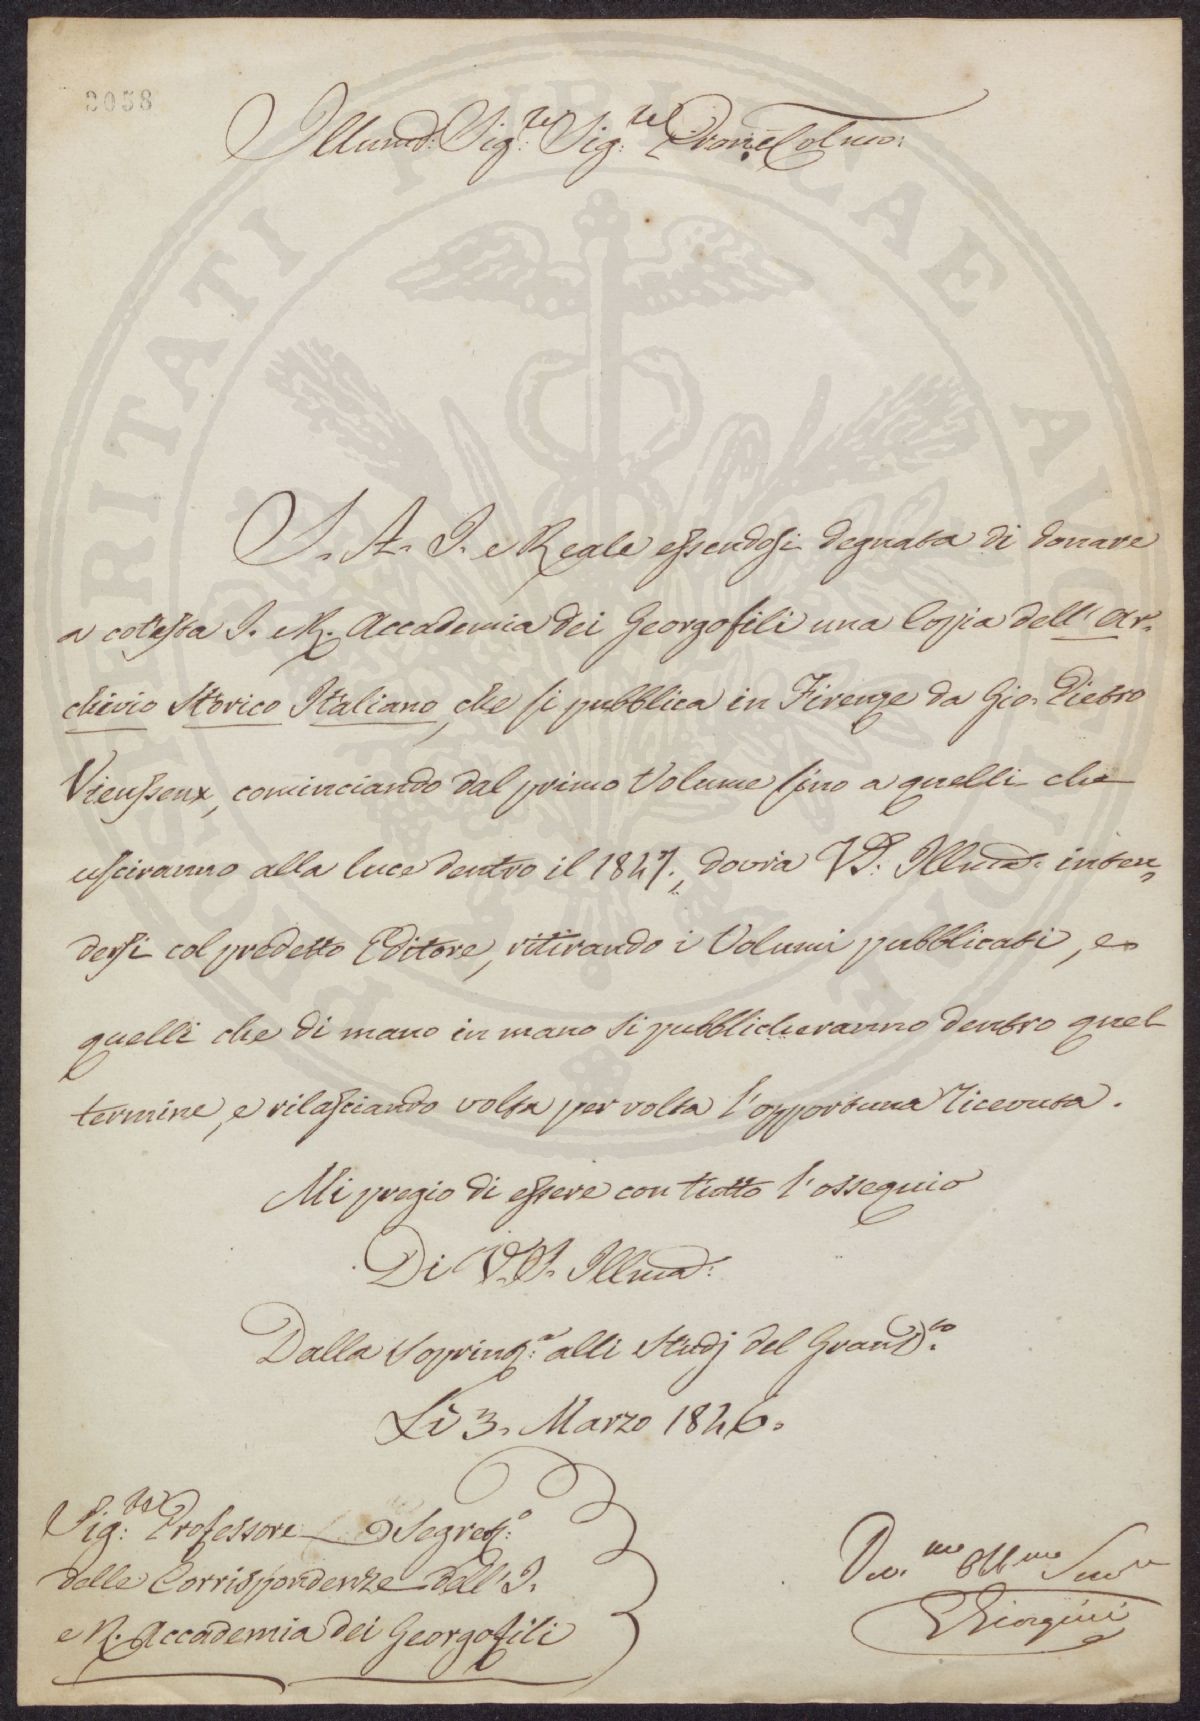 3058
Illmo: Sig:re Sig:re Pron: Colmo:
S. A. I. e Reale essendosi degnata di donare
a cotesta I. e R. Accademia dei Georgofili una Copia dell' Ar-
chivio Storico Italiano, che si pubblica in Firenze da Gio. Pietro
Vieusseux, cominciando dal primo Volume sino a quelli che
usciranno alla luce dentro il 1847., dovrà VS: Illma: inten-
dersi col predetto Editore, ritirando i Volumi pubblicati, e
quelli che di mano in mano si pubblicheranno dentro quel
termine, e rilasciando volta per volta l'opportuna ricevuta.
Mi pregio di essere con tutto l'ossequio
Di V.S. Illma:
Dalla Soprinta: alli Studj del GranDto.
Li 3. Marzo 1846.
Sig:re Professore Segreto:
delle Corrispondenze dell' I.
e R. Accademia dei Georgofili
Dev.mo Obb.mo Serv.re
Giorgini
PROSPERITATI PUBLICAE AUGENDAE